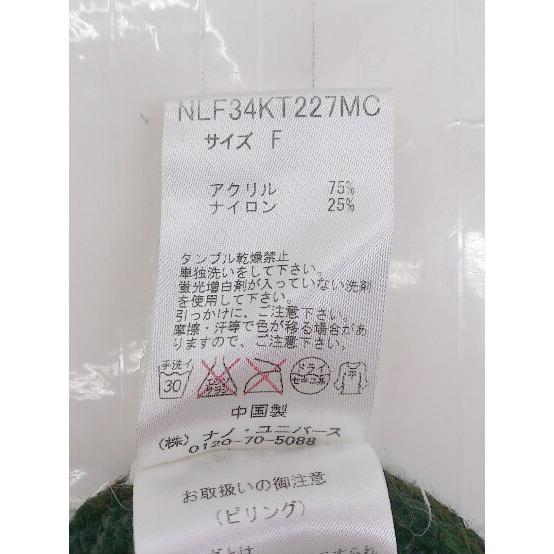 NLF34KT227MC
サイズ F
アクリル 75%
ナイロン 25%
タンブル乾燥禁止
単独洗いをして下さい。
蛍光増白剤が入っていない洗剤
を使用して下さい。
引っかけに、ご注意下さい。
摩擦・汗等で色が移る場合があ
りますので、ご注意下さい。
手洗イ 30 エンソサラシ ドライ セキユ系 平
中国製
(株) ナノ・ユニバース
0120-70-5088
お取扱いの御注意
(ピリング)